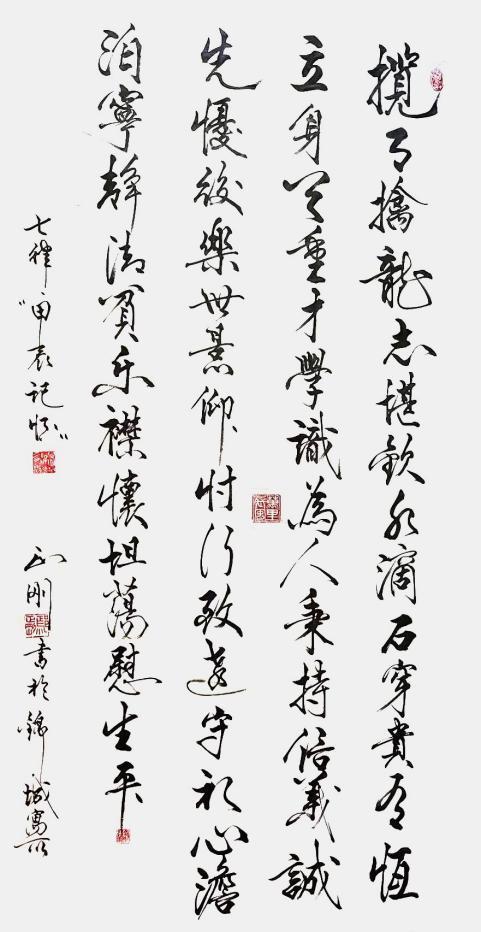 攬月擒龍志堪欽水滴石穿貴有恆
立身重才學識為人秉持信義誠
先憂後樂世景仰忖行致遠守初心澹
泊寧靜清貧樂襟懷坦蕩慰生平
七律"甲辰記懷"
剛書於錦城寓所